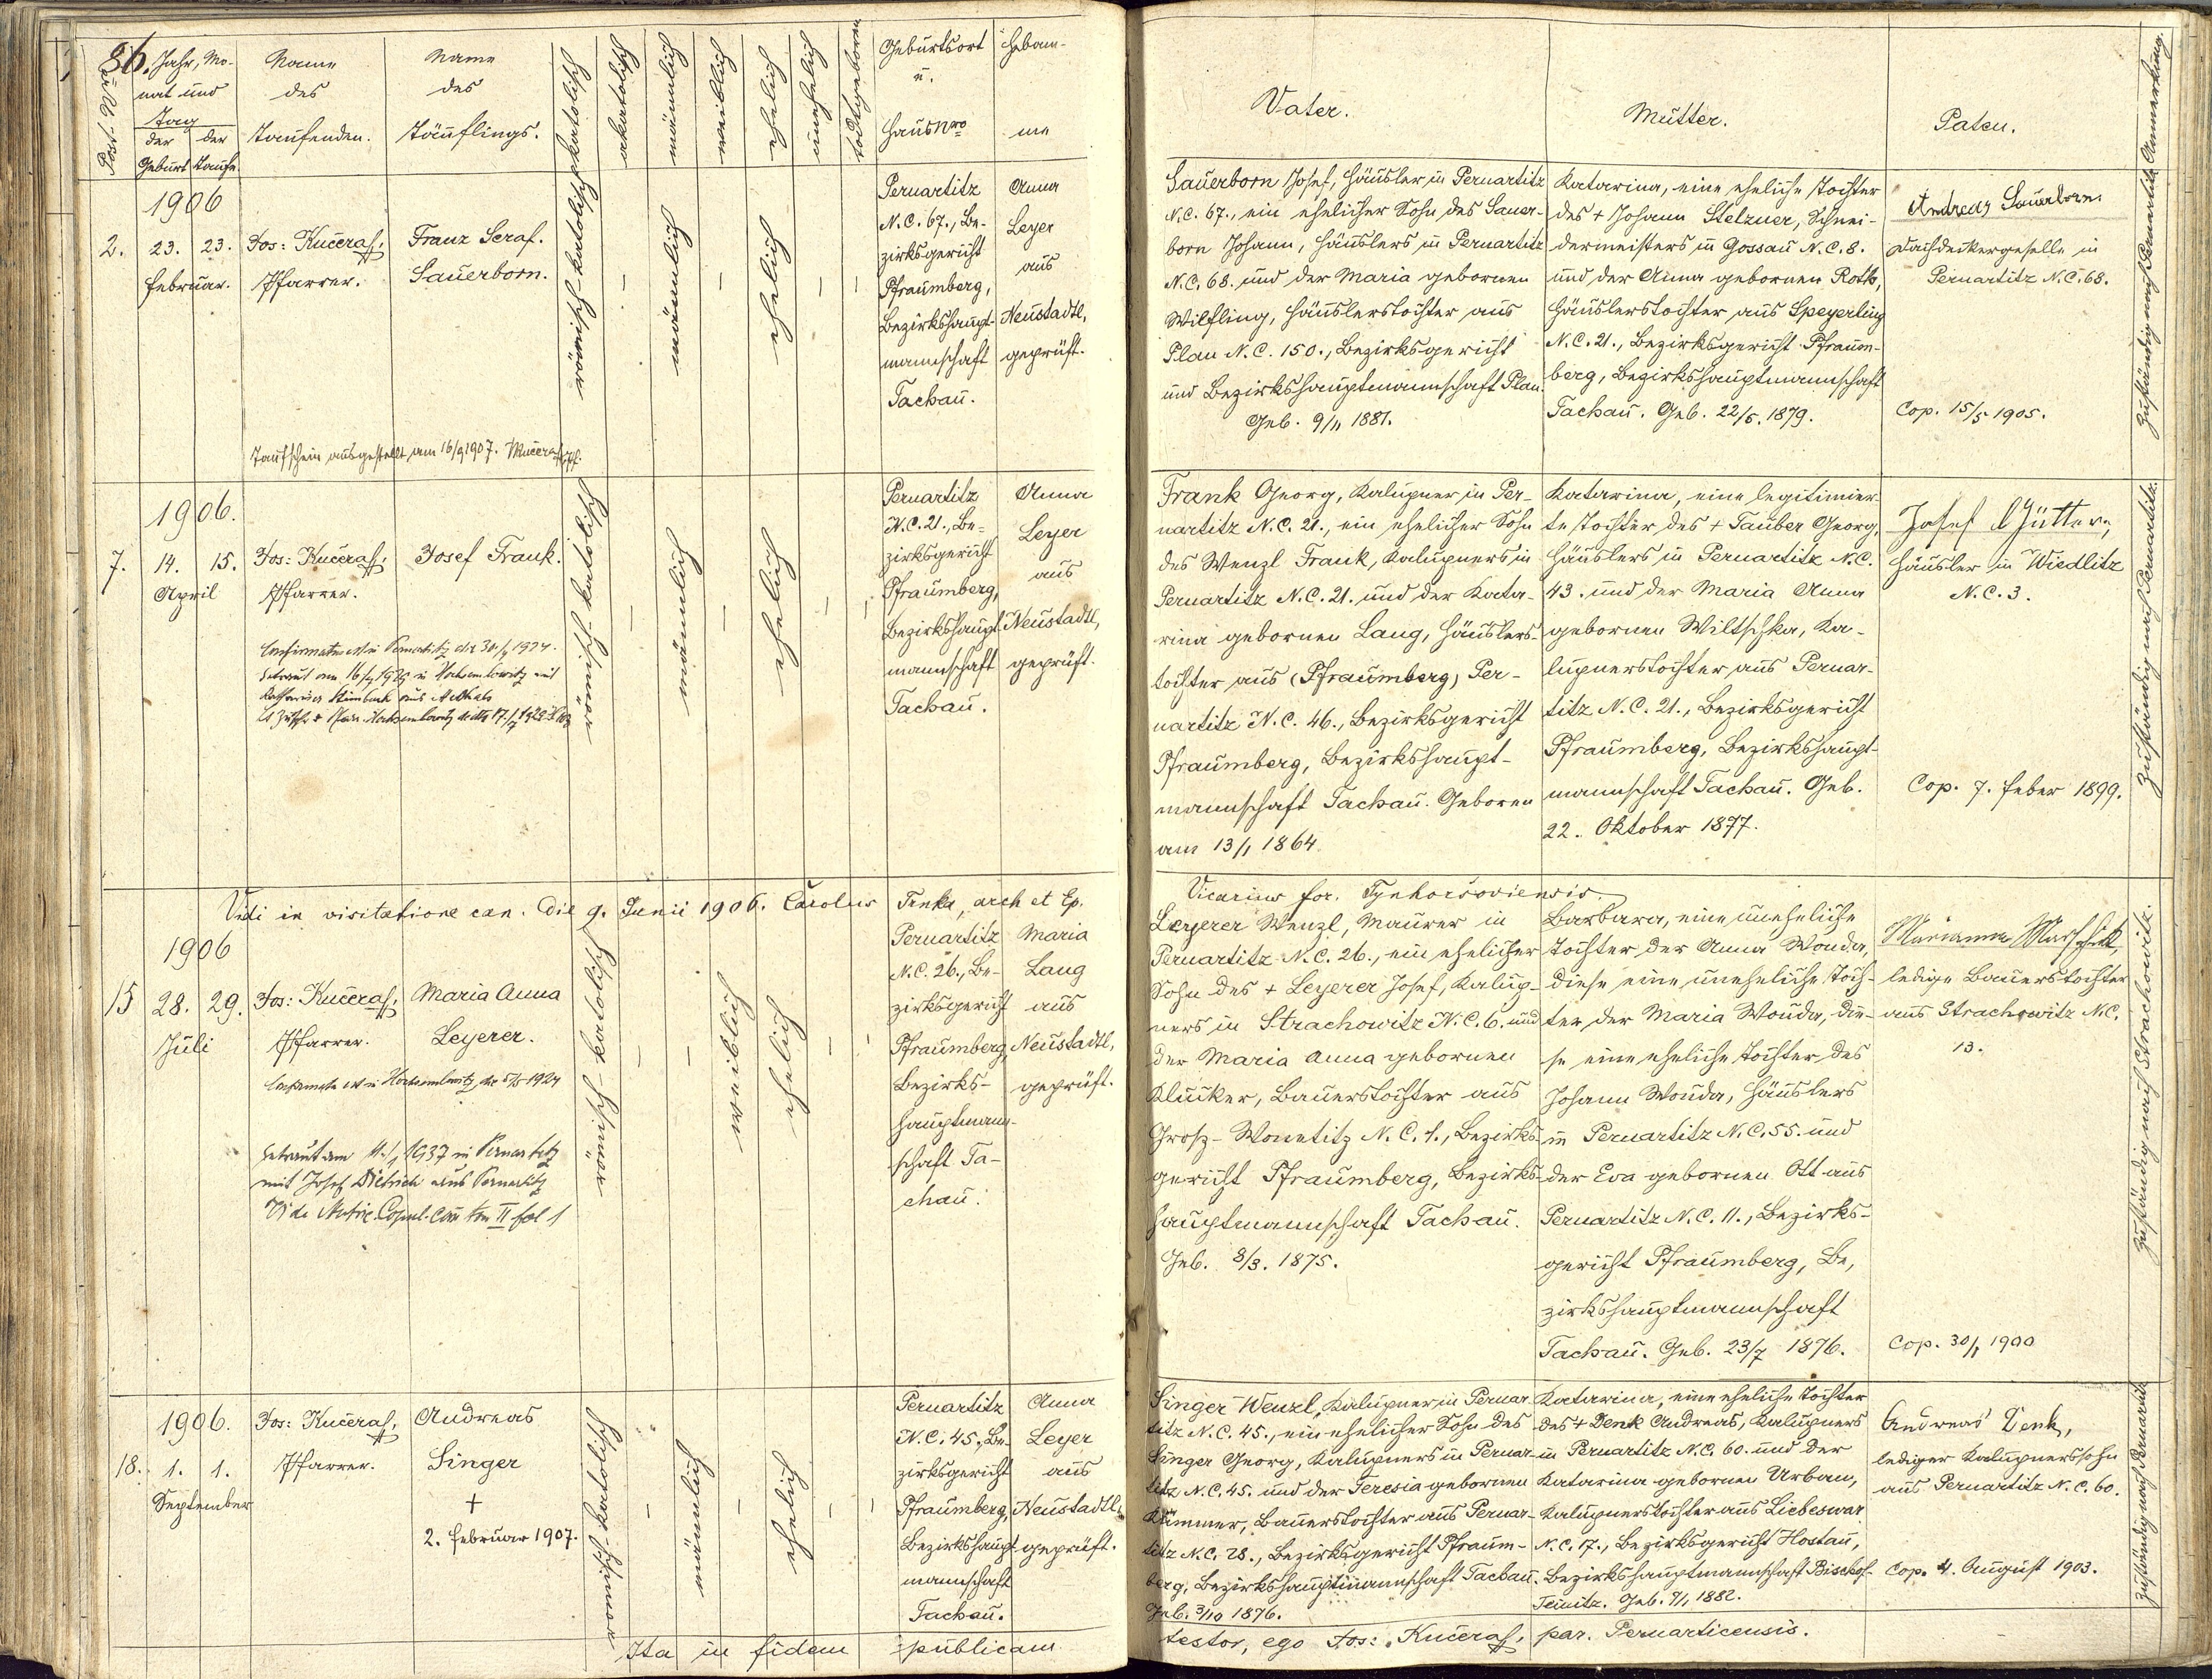 86.
Post-Nro
Jahr, Mo-
nat und
Tag
der der
Geburt Taufe.
Name
des
Taufenden.
Name
des
Täuflings.
katolisch
akatolisch
männlich
weiblich
ehelich
unehelich
todtgeboren
Geburtsort
u.
Hausnro
Hebam-
me
Vater.
Mutter.
Paten.
Anmerkung.
1906
2. 23. 23.
Februar.
Jos: Kučera,
Pfarrer.
Franz Seraf.
Sauerborn.
Taufschein ausgestellt am 16/9 1907. Kučera, Pf.
römisch-katolisch
–
männlich
–
ehelich
–
–
Pernartitz
N.C. 67., Be-
zirksgericht
Pfraumberg,
Bezirkshaupt-
mannschaft
Tachau.
Anna
Leyer
aus
Neustadtl,
geprüft.
Sauerborn Josef, Häusler in Pernartitz
N.C. 67., ein ehelicher Sohn des Sauer-
born Johann, Häuslers in Pernartitz
N.C. 68. und der Maria gebornen
Wilfling, Häuslerstochter aus
Plan N.C. 150., Bezirksgericht
und Bezirkshauptmannschaft Plan.
Geb. 9/11 1881.
Katarina, eine eheliche Tochter
des + Johann Stelzner, Schnei-
dermeisters in Gossau N.C. 8.
und der Anna gebornen Roth,
Häuslerstochter aus Speyerling
N.C. 21., Bezirksgericht Pfraum-
berg, Bezirkshauptmannschaft
Tachau. Geb. 22/5. 1879.
Andreas Sauerborn
Dachdeckergeselle in
Pernartitz N.C. 68.
Cop. 15/5 1905.
Zuständig nach Pernartitz
1906.
7. 14. 15.
April
Jos: Kučera,
Pfarrer.
Josef Frank.
Confirmatus est in Pernartitz die 30/ 1924.
Getraut am 16/ 1929 in Hochsemlowitz mit
römisch-katolisch
–
männlich
–
ehelich
–
–
Pernartitz
N.C. 21., Be-
zirksgericht
Pfraumberg,
Bezirkshaupt-
mannschaft
Tachau.
Anna
Leyer
aus
Neustadtl,
geprüft.
Frank Georg, Kalupner in Per-
nartitz N.C. 21., ein ehelicher Sohn
des Wenzl Frank, Kalupners in
Pernartitz N.C. 21. und der Kata-
rina gebornen Lang, Häuslers-
tochter aus (Pfraumberg) Per-
nartitz N.C. 46., Bezirksgericht
Pfraumberg, Bezirkshaupt-
mannschaft Tachau. Geboren
am 13/1 1864
Katarina, eine legitimier-
te Tochter des + Tauber Georg,
Häuslers in Pernartitz N.C.
43. und der Maria Anna
gebornen Wiltschka, Ka-
lupnerstochter aus Pernar-
titz N.C. 21., Bezirksgericht
Pfraumberg, Bezirkshaupt-
mannschaft Tachau. Geb.
22. Oktober 1877.
Josef
Häusler in Wiedlitz
N.C. 3.
Cop. 7. Feber 1899.
Zuständig nach Pernartitz.
Vidi in visitatione can. die 9. Junii 1906. Carolus Trnka, arch et Ep.
Vicarius for. Tynhorsoviensis.
1906
15 28. 29.
Juli
Jos: Kučera,
Pfarrer.
Maria Anna
Leyerer.
Confirmata est in Hochsemlowitz die 5/5 1924
Getraut am 11./1 1937 in Pernartitz
mit Josef Dietrich aus Pernartitz
Vide Matric. Copul. tom II fol 1
römisch-katolisch
–
–
weiblich
ehelich
–
–
Pernartitz
N.C. 26., Be-
zirksgericht
Pfraumberg,
Bezirks-
hauptmann-
schaft Ta-
chau.
Maria
Lang
aus
Neustadtl,
geprüft.
Leyerer Wenzl, Maurer in
Pernartitz N.C. 26., ein ehelicher
Sohn des + Leyerer Josef, Kalup-
ners in Strachowitz N.C. 6. und
der Maria Anna gebornen
Klucker, Bauerstochter aus
Grosz-Wonetitz N.C. 1., Bezirks-
gericht Pfraumberg, Bezirks-
hauptmannschaft Tachau.
Geb. 8/3. 1875.
Barbara, eine uneheliche
Tochter der Anna Wonda,
diese eine uneheliche Toch-
ter der Maria Wonda, die-
se eine eheliche Tochter des
Johann Wonda, Häuslers
in Pernartitz N.C. 55. und
der Eva gebornen Ott aus
Pernartitz N.C. 11., Bezirks-
gericht Pfraumberg, Be,
zirkshauptmannschaft
Tachau. Geb. 23/7 1876.
Marianna Marschik,
ledige Bauerstochter
aus Strachowitz N.C.
13.
Cop. 30/1 1900
Zuständig nach Strachowitz.
1906.
18. 1. 1.
September
Jos: Kučera,
Pfarrer.
Andreas
Singer
+
2. Februar 1907.
römisch-katolisch
–
männlich
–
ehelich
–
–
Pernartitz
N.C. 45., Be-
zirksgericht
Pfraumberg,
Bezirkshaupt-
mannschaft
Tachau.
Anna
Leyer
aus
Neustadtl,
geprüft.
Singer Wenzl, Kalupner in Pernar-
titz N.C. 45., ein ehelicher Sohn des
Singer Georg, Kalupners in Pernar-
titz N.C. 45. und der Teresia gebornen
Kummer, Bauerstochter aus Pernar-
titz N.C. 28., Bezirksgericht Pfraum-
berg, Bezirkshauptmannschaft Tachau.
Geb. 3/10 1876.
Katarina, eine eheliche Tochter
des + Denk Andreas, Kalupners
in Pernartitz N.C. 60. und der
Katarina gebornen Urban,
Kalupnerstochter aus Liebeswar
N.C. 17., Bezirksgericht Hostau,
Bezirkshauptmannschaft Bischof-
Teinitz. Geb. 9/1 1882.
Andreas Denk,
lediger Kalupnerssohn
aus Pernartitz N.C. 60.
Cop. 4. August 1903.
Zuständig nach Pernartitz
Ita in fidem publicam
testor, ego Jos: Kučera, par. Pernarticensis.